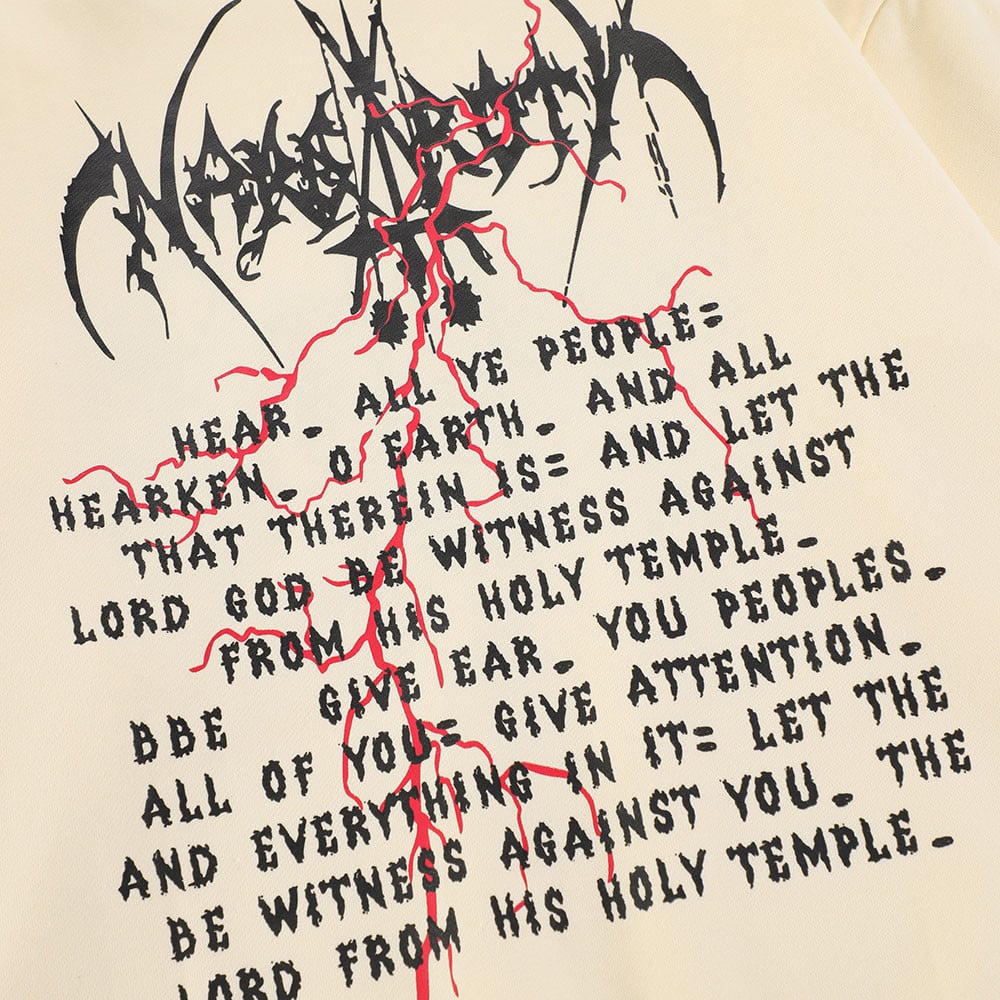 HEAR. ALL YE PEOPLE=
HEARKEN. O EARTH. AND ALL
THAT THEREIN IS= AND LET THE
LORD GOD BE WITNESS AGAINST
FROM HIS HOLY TEMPLE.
BBE GIVE EAR. YOU PEOPLES.
ALL OF YOU= GIVE ATTENTION.
AND EVERYTHING IN IT= LET THE
BE WITNESS AGAINST YOU. THE
LORD FROM HIS HOLY TEMPLE.